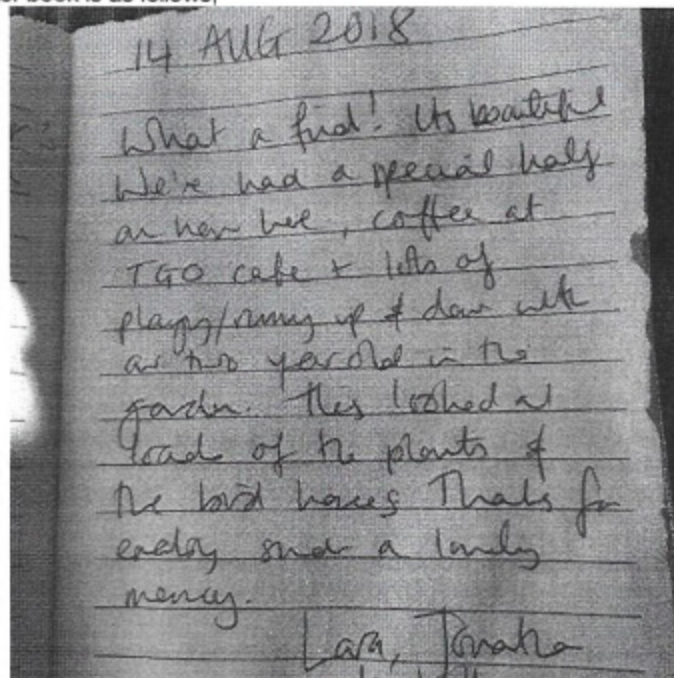 14 AUG 2018
What a find! Its beautiful
We're had a special half
an hour here, coffee at
TGO cafe + lots of
playing/running up & down with
our two year old in the
garden. This looked at
loads of the plants &
the bird houses Thanks for
such a lovely
memory.
Lara,